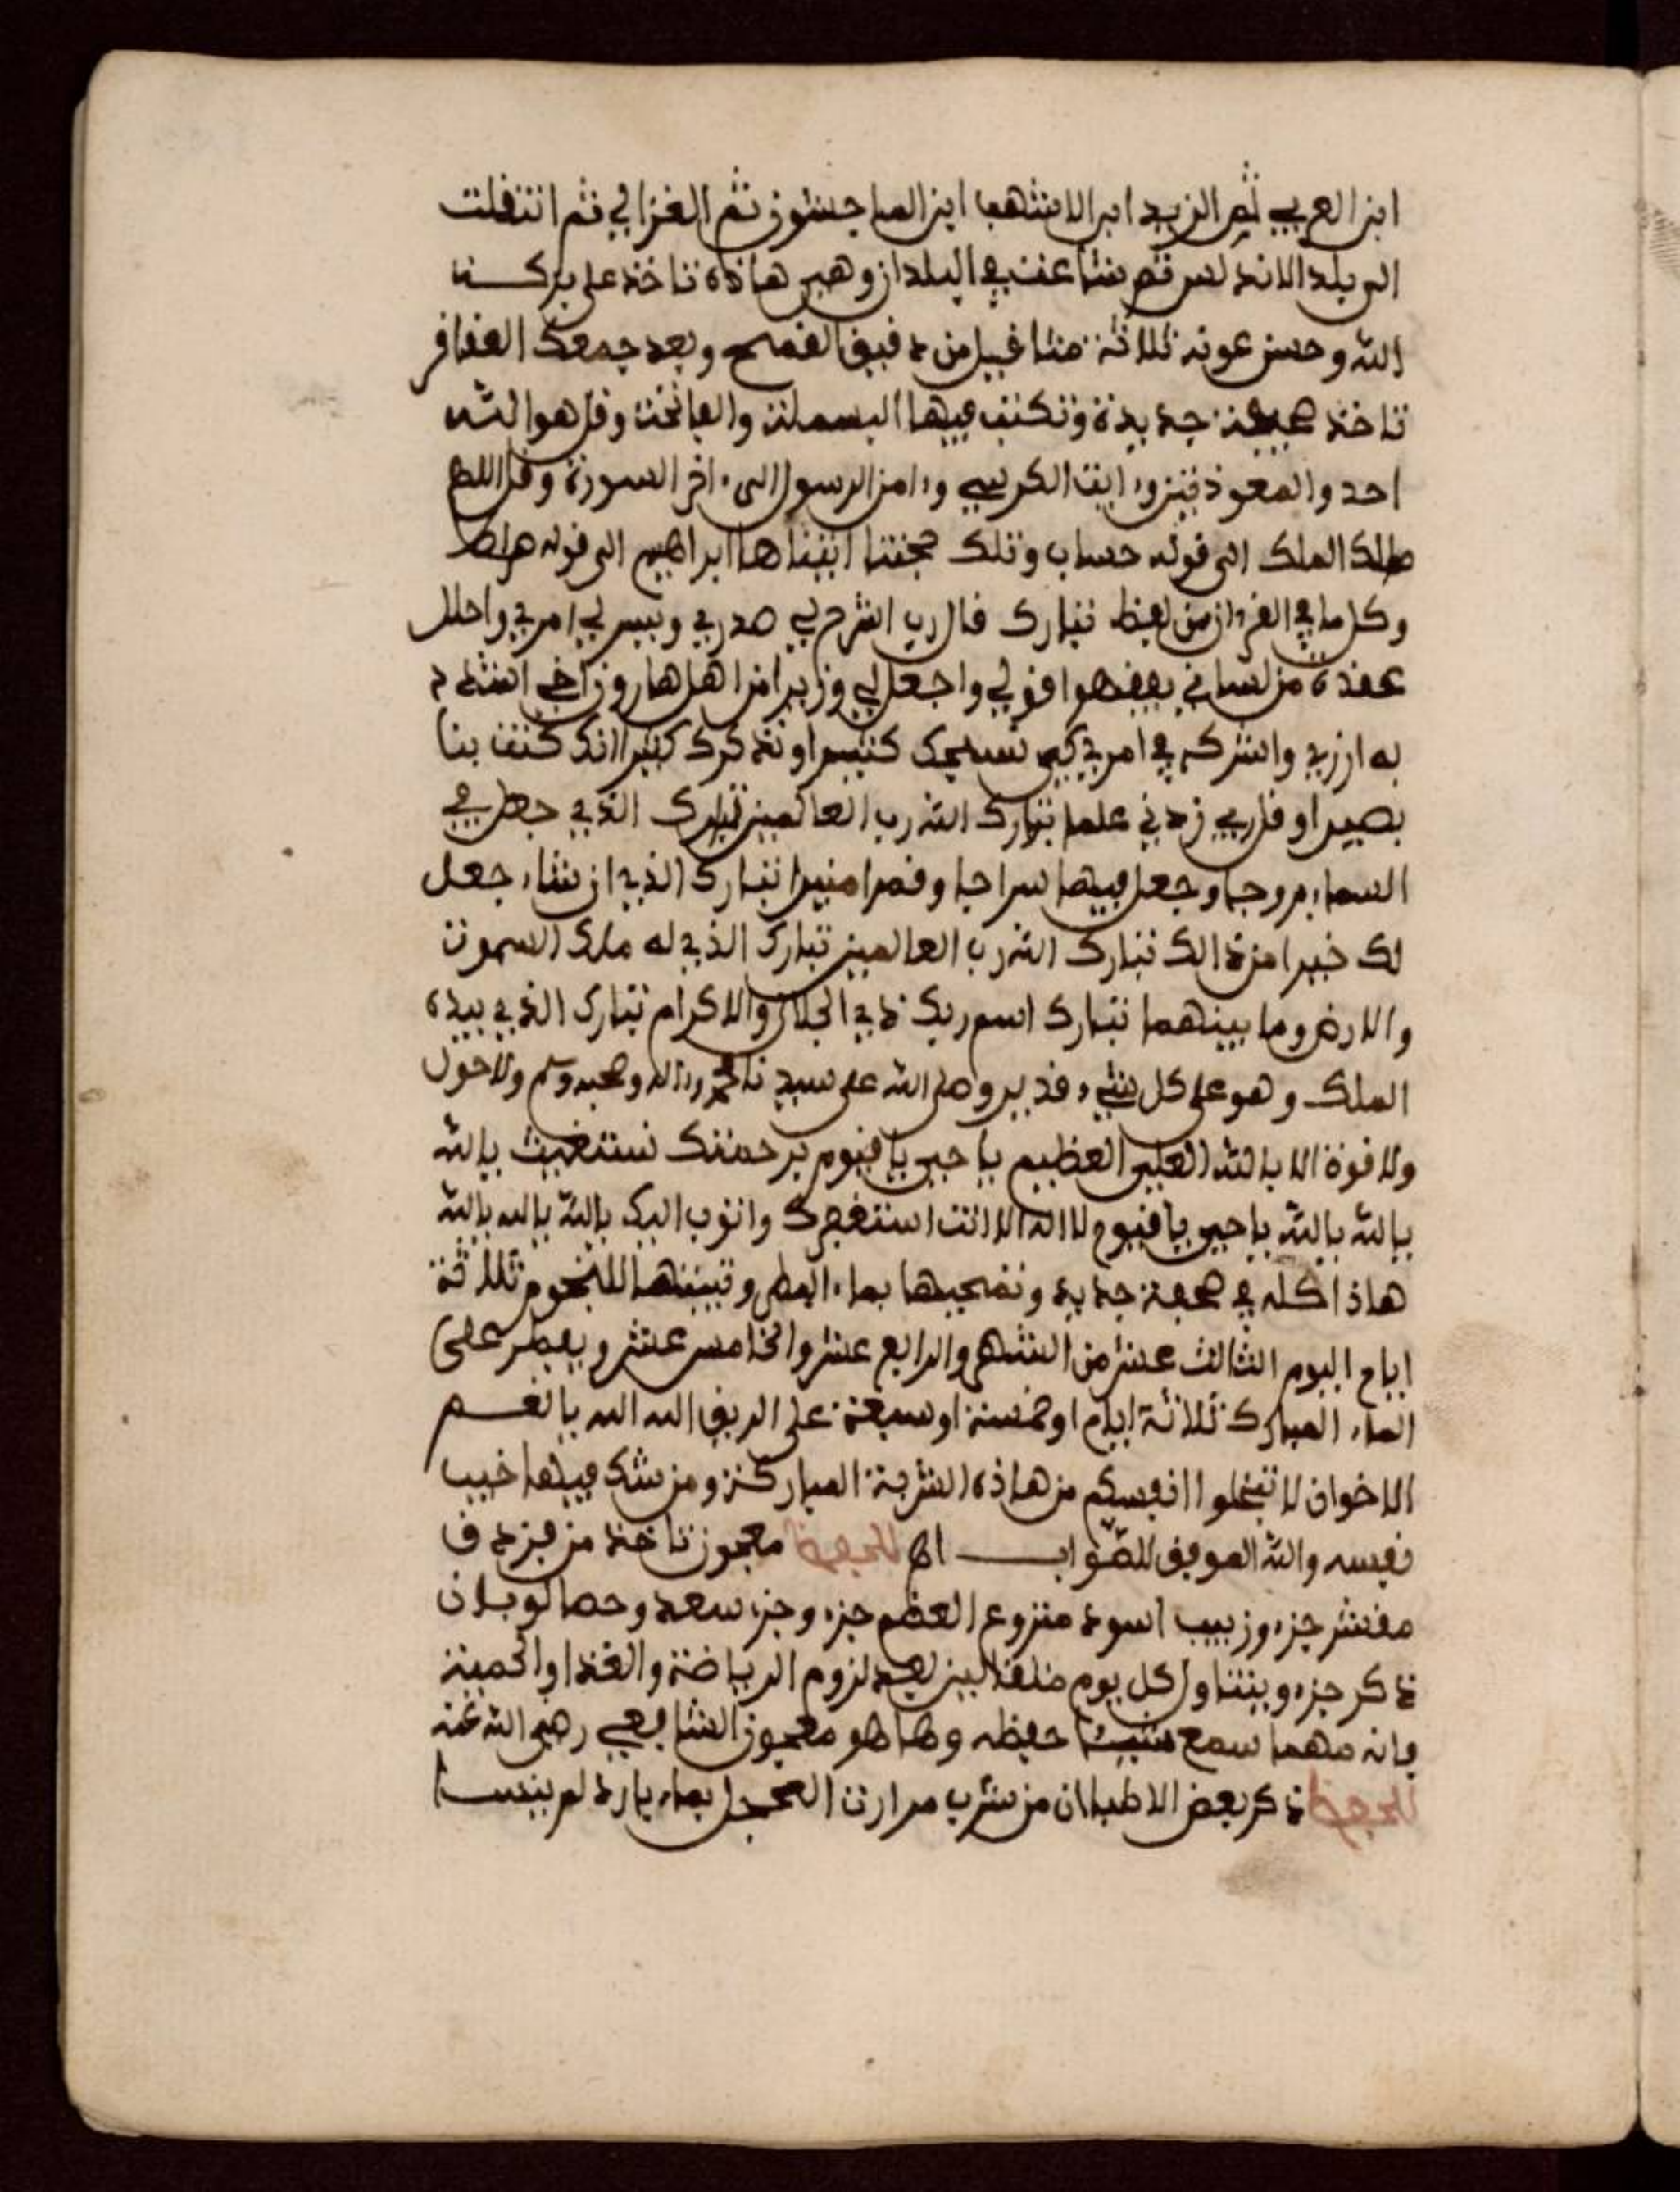 ابن العربي ثم الزبيد ابن الاشهب ابن الماجشون ثم الغزالي ثم انتقلت
الى بلد الاندلس ثم شاعت في البلدان وهي هاذه تاخذ على بركت
الله وحسن عونه ثلاثة مثاقيل من دقيق القمح وبعد جمعك العقاقر
تاخذ صحيفة جديدة وتكتب فيها البسملة والفاتحة وقل هو الله
احد والمعوذتين وءايت الكرسي وءامن الرسول الى ءاخر السورة وقل اللهم
مالك الملك الى قوله حساب وتلك حجتنا اتيناها ابراهيم الى قوله
وكل ما في القرءان من لفظ تبارك قال رب اشرح لي صدري ويسر لي امري واحلل
عقدة من لساني يفقهوا قولي واجعل لي وزيرا من اهل هارون اخي اشدد
به ازري واشركه في امري كي نسبحك كثيرا ونذكرك كثيرا انك كنت بنا
بصيرا وقل ربي زدني علما تبارك الله رب العالمين تبارك الذي جعل في
السماء بروجا وجعل فيها سراجا وقمرا منيرا تبارك الذي ان شاء جعل
لك خيرا من ذالك تبارك الله رب العالمين تبارك الذي له ملك السموت
والارض وما بينهما تبارك اسم ربك ذي الجلال والاكرام تبارك الذي بيده
الملك وهو على كل شيء قدير وصلى الله على سيدنا محمد وءاله وصحبه وسلم ولا حول
ولا قوة الا بالله العلي العظيم يا حي يا قيوم برحمتك نستغيث بالله
بالله بالله يا حي يا قيوم لا اله الا انت استغفرك واتوب اليك بالله بالله بالله
هاذا كله في صحفة جديد وتمحيها بماء المطر وتبيتها للنجوم ثلاثة
ايام اليوم الثالث عشر من الشهر والرابع عشر والخامس عشر ويفطر على
الماء المبارك ثلاثة ايام او خمسة او سبعة على الريق الله الله يا نعم
الاخوان لا تبخلوا انفسكم من هاذه الشربة المباركة ومن شك فيها خيب
نفسه والله الموفق للصواب اه للحفظ معجون تاخذ من فزدق
مقشر جزء وزبيب اسود منزوع العظم جزء وجزء سعد وحصا لوبان
ذكر جزء ويتناول كل يوم مثقالين بعد لزوم الرياضة والغذا والحمية
فانه مهما سمع شيئا حفظه وها هو معجون الشافعي رضي الله عنه
للحفظ ذكر بعض الاطبا ان من شرب مرارت الحجل بماء بارد لم ينسا